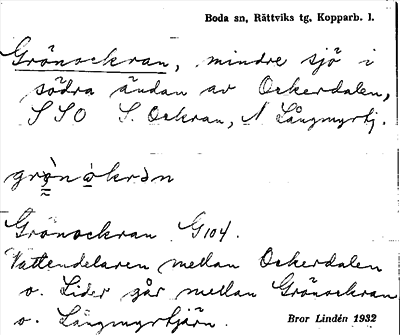 Boda sn, Rättviks tg, Kopparb. l.
Grönockran, mindre sjö i
södra ändan av Ockerdalen,
SSO S. Ockran, N Långmyrtj.
Grönockran G104.
Vattendelaren mellan Ockerdalen
o. Lider går mellan Grönockran
o. Långmyrtjärn.
Bror Lindén 1932